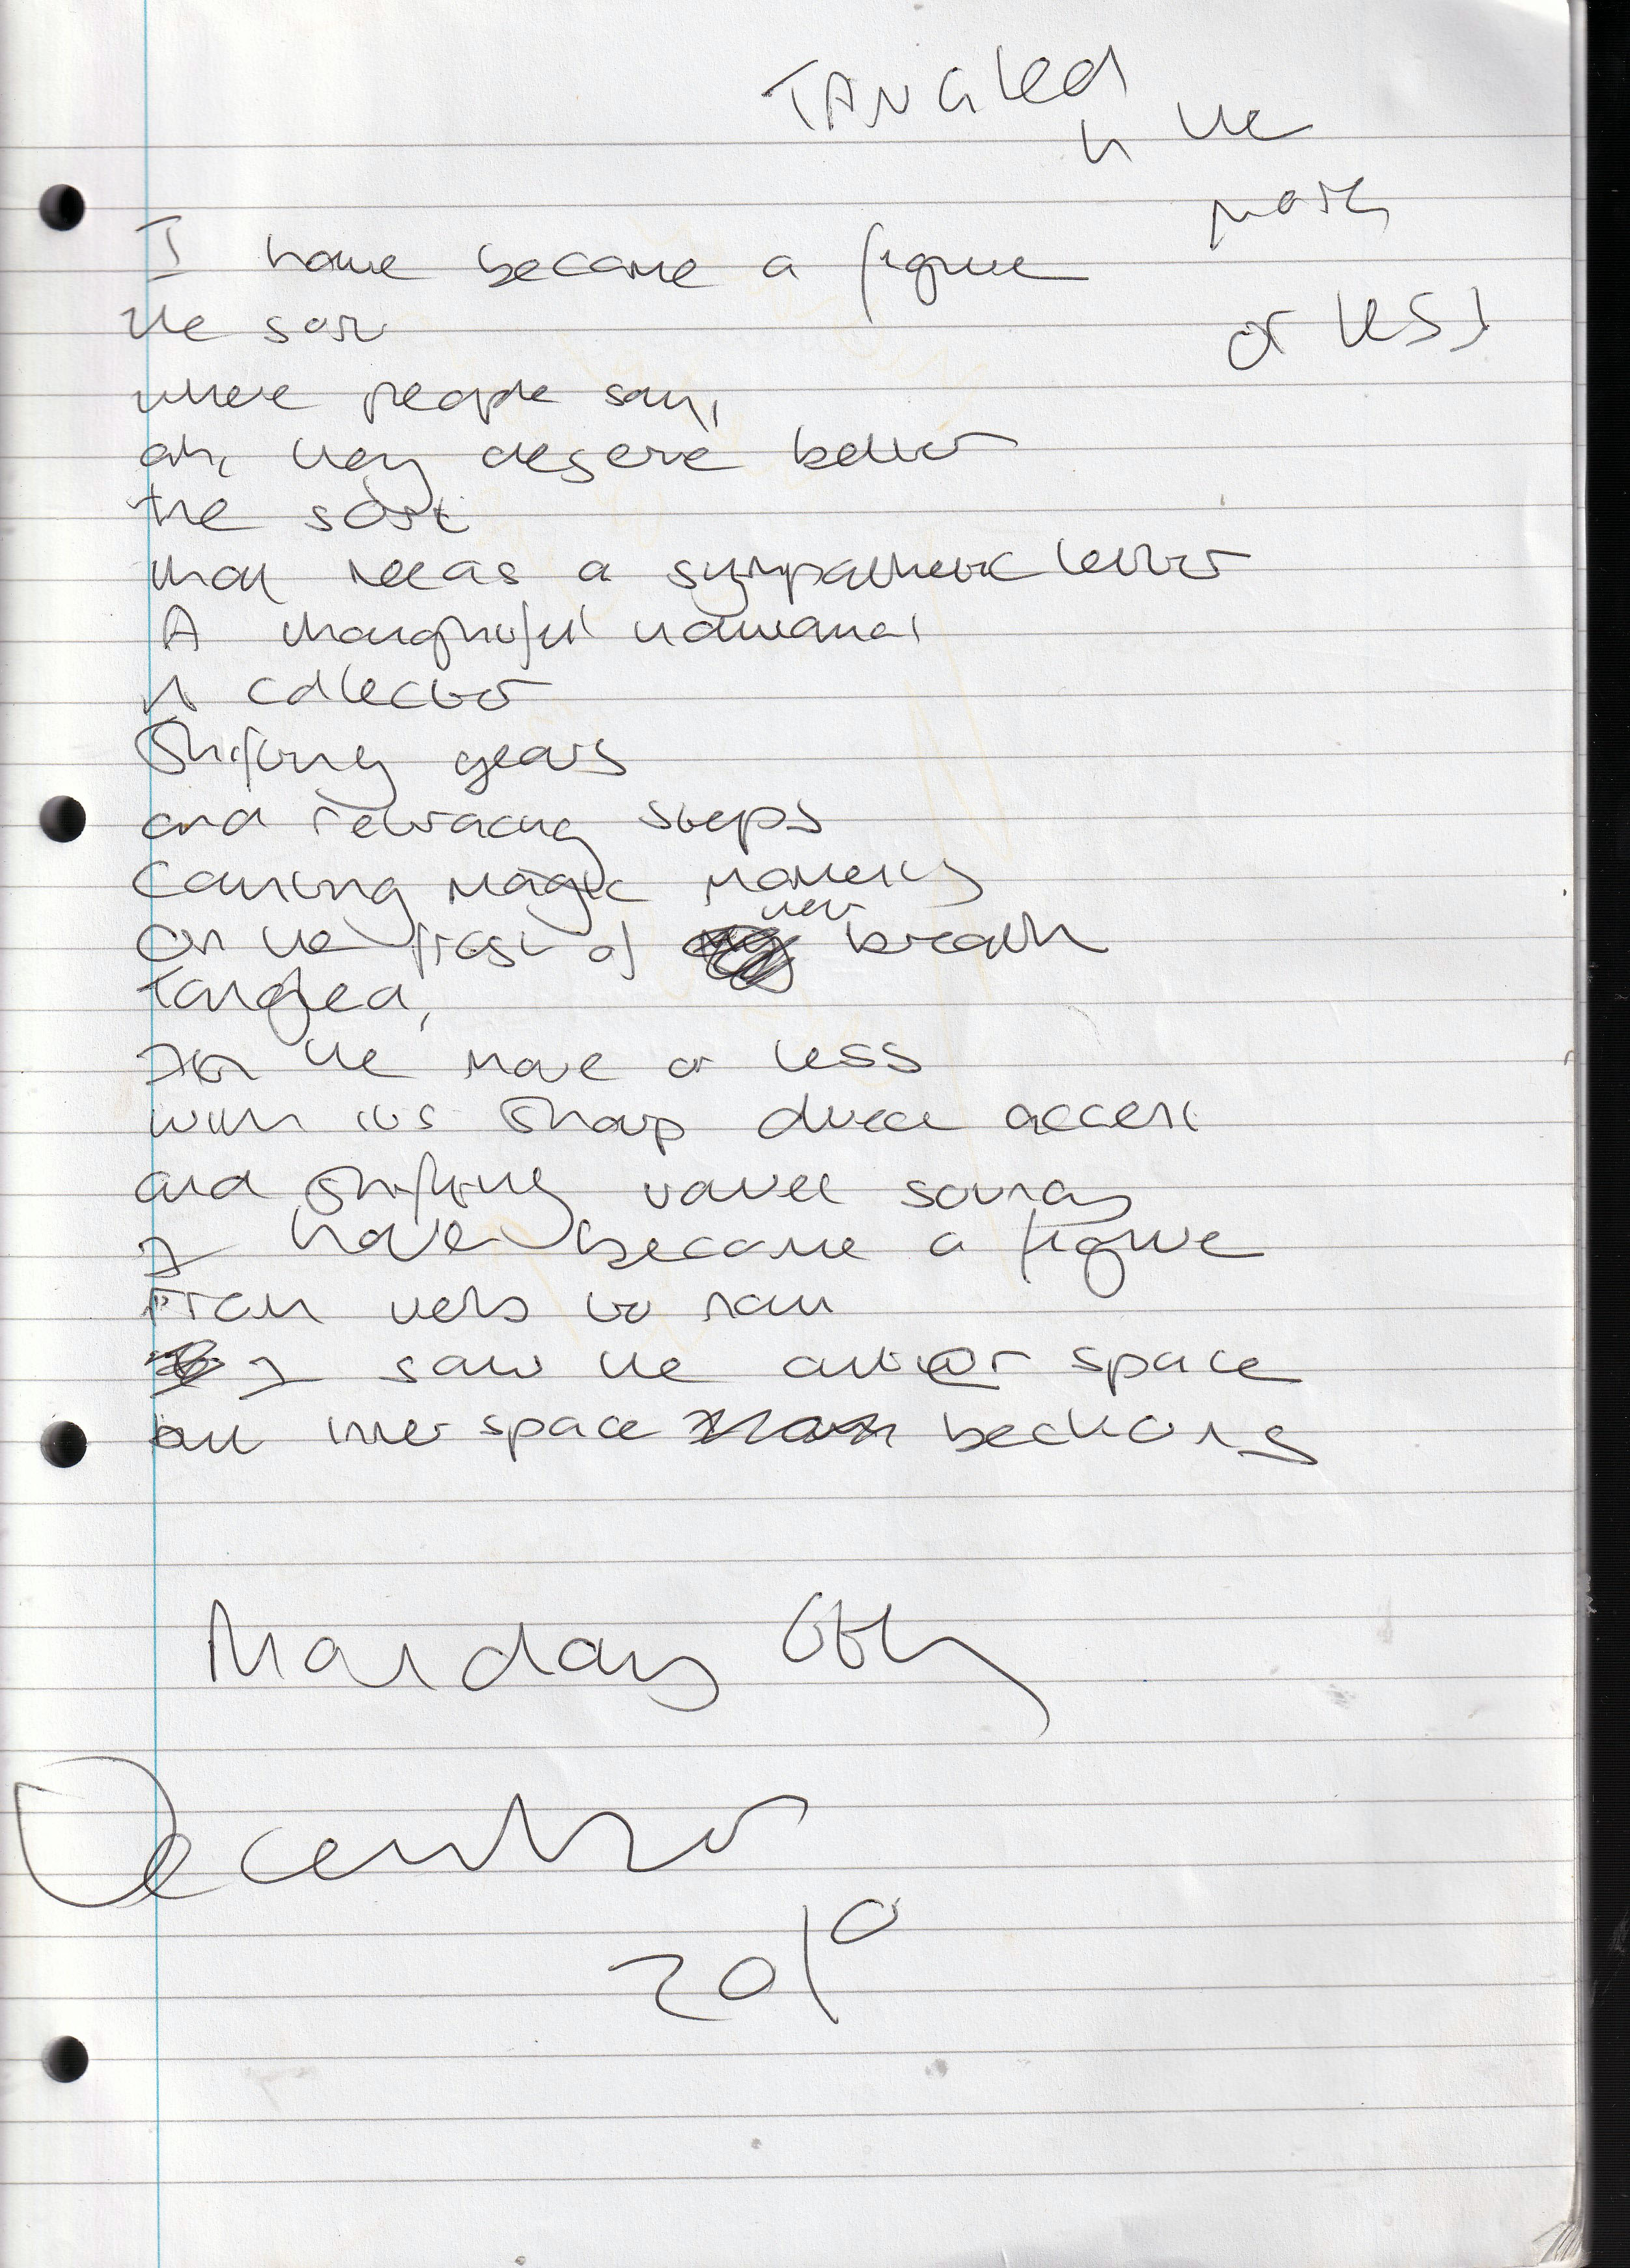 TANGled
in the
more
or less
I have become a figure
the sort
where people say,
ah, they deserve better
the sort
that needs a sympathetic letter
A thoughtful
A collector
Shifting gears
and retracing steps
Causing magic moments
on the frost of their breath
Tangled,
in the more or less
with its sharp direct accent
and shifting vowel sounds
I have become a figure
From then to now
I saw the outer space
but inner space beckons
Monday 6th
December
2010